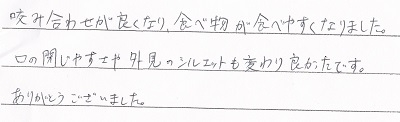 咬み合わせが良くなり、食べ物が食べやすくなりました。
口の閉じやすさや外見のシルエットも変わり良かったです。
ありがとうございました。